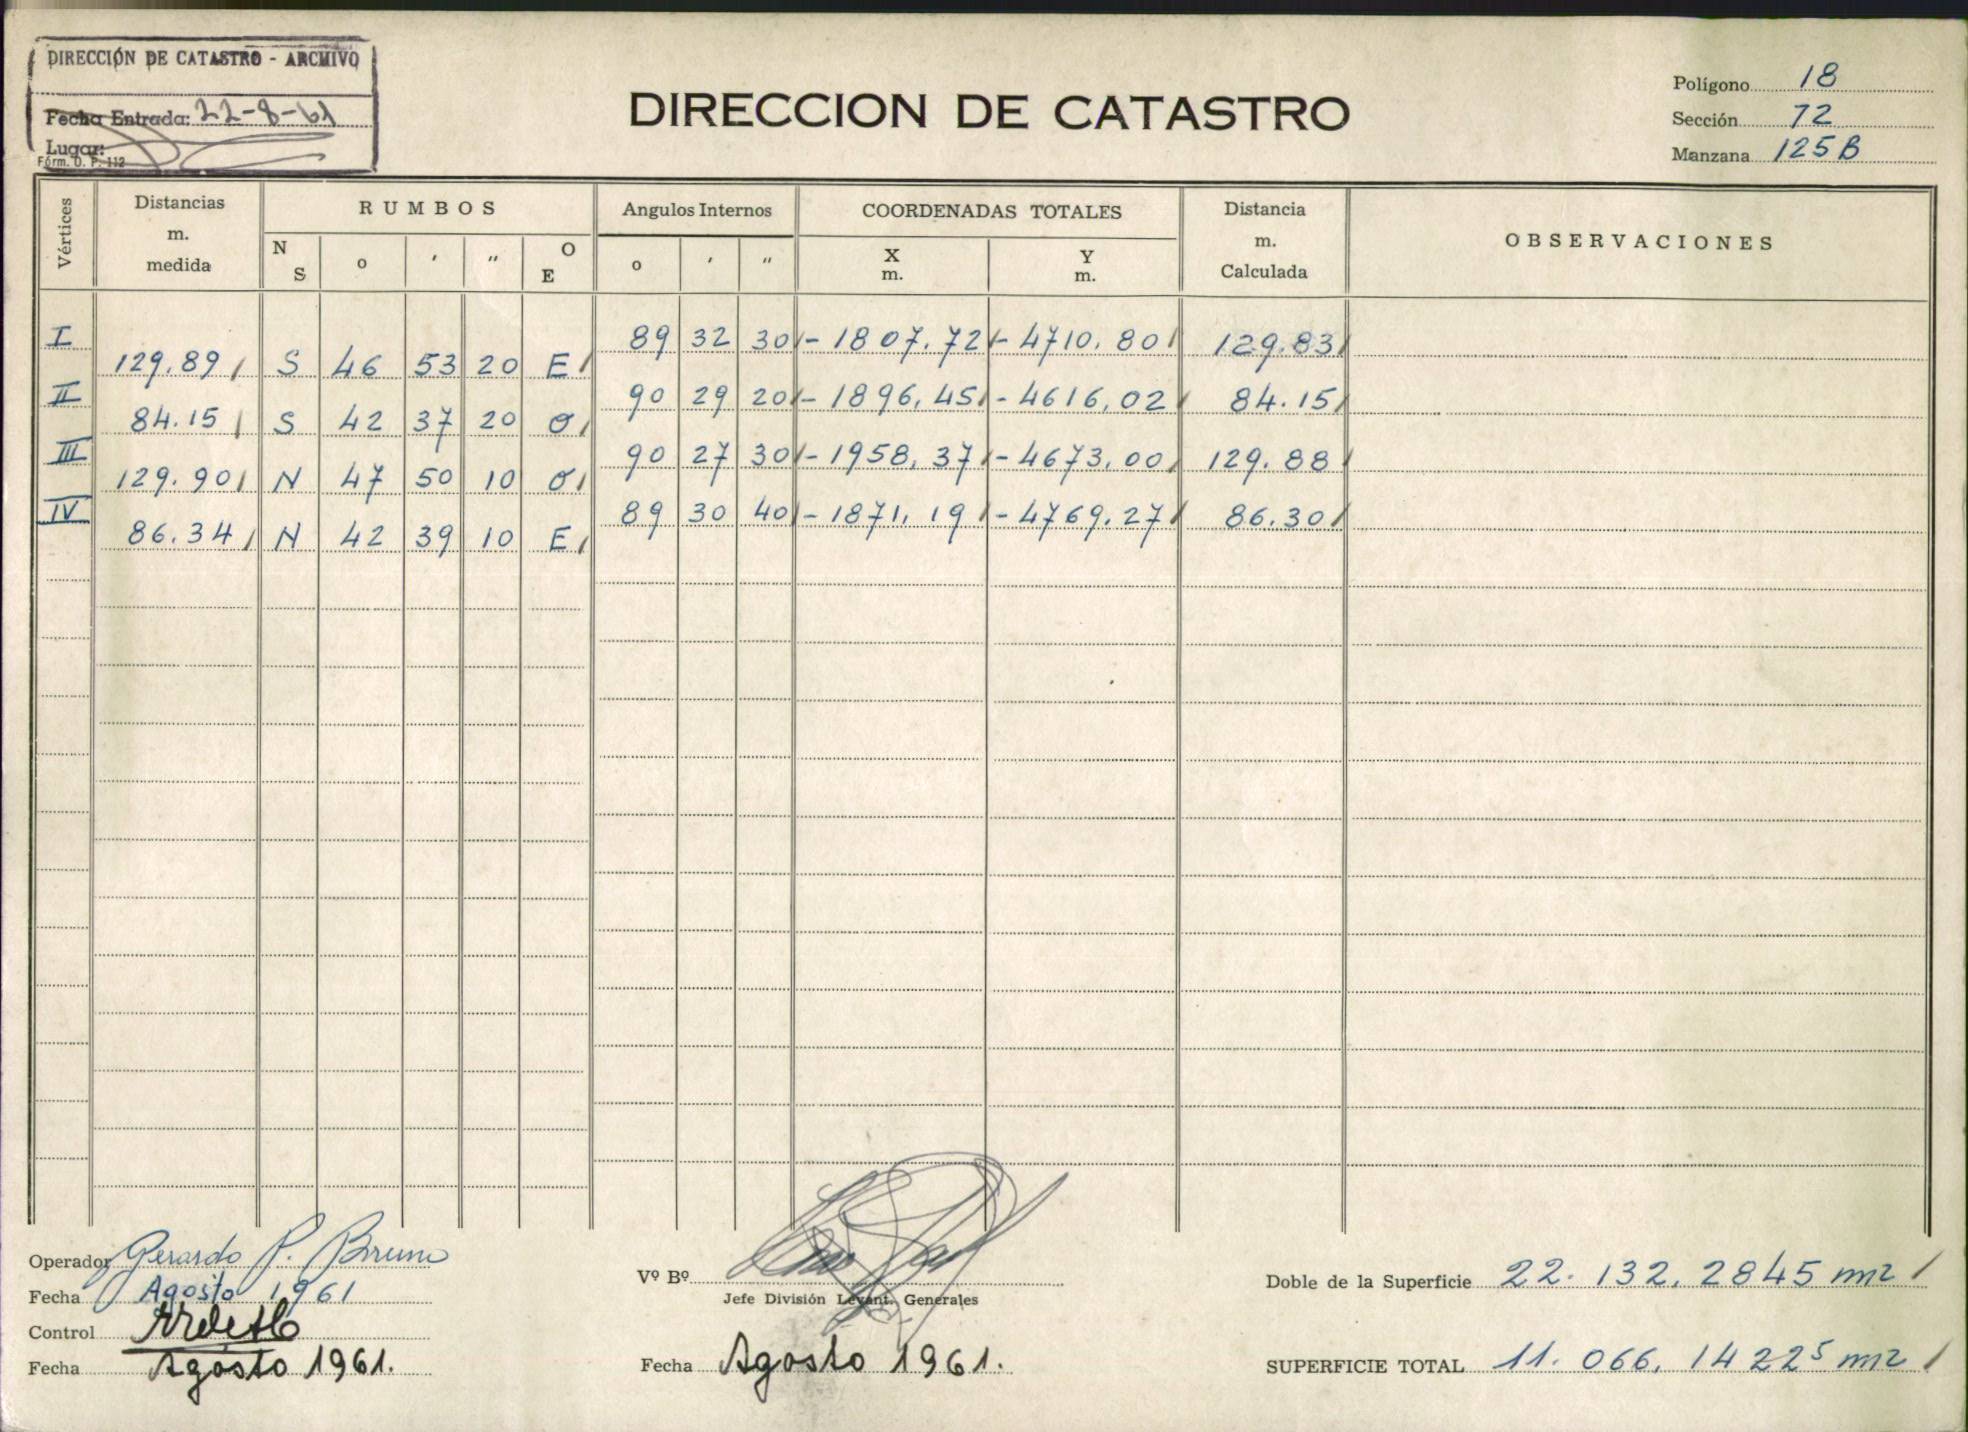 DIRECCIÓN DE CATASTRO - ARCHIVO
Fecha Entrada: 22-8-61
Lugar:
Fórm. D. P. 112
DIRECCION DE CATASTRO
Polígono 18
Sección 72
Manzana 125B
Vértices Distancias m. medida RUMBOS Angulos Internos COORDENADAS TOTALES Distancia m. Calculada OBSERVACIONES
N S o ′ ″ O E o ′ ″ X m. Y m.
I 89 32 30 - 1807.72 - 4710.80 129.83
129.89 S 46 53 20 E
II 90 29 20 - 1896,45 - 4616,02 84.15
84.15 S 42 37 20 O
III 90 27 30 - 1958,37 - 4673,00 129.88
129.90 N 47 50 10 O
IV 89 30 40 - 1871,19 - 4769.27 86.30
86.34 N 42 39 10 E
Operador Gerardo P. Bruno
Fecha Agosto 1961
Control
Fecha Agosto 1961.
Vº Bº
Jefe División Levant. Generales
Fecha Agosto 1961.
Doble de la Superficie 22.132,2845 m2
SUPERFICIE TOTAL 11.066,14225 m2